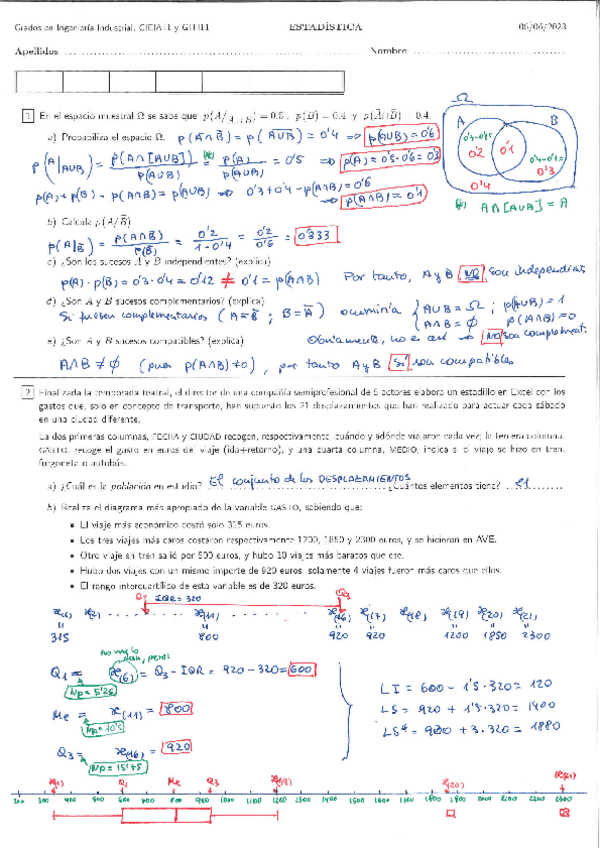 Grados en Ingeniería Industrial, GIEIAII y GITIII ESTADÍSTICA 06/06/2023
Apellidos Nombre
1 En el espacio muestral Ω se sabe que p(A/A∪B) = 0.5 , p(B) = 0.4 y p(A̅∩B̅) = 0.4.
a) Probabiliza el espacio Ω. p(A̅∩B̅) = p(A̅∪̅B̅) = 0'4 ⇒ p(A∪B) = 0'6
p(A|A∪B) = p(A∩[A∪B]) / p(A∪B) (*)= p(A) / p(A∪B) = 0'5 ⇒ p(A) = 0'5·0'6 = 0'3
p(A) + p(B) - p(A∩B) = p(A∪B) ⇒ 0'3+0'4-p(A∩B) = 0'6 ⇒ p(A∩B) = 0'1
Ω
A B
0'3-0'1= 0'2 0'1 0'4-0'1= 0'3
0'4
(*) A∩[A∪B] = A
b) Calcula p(A/B̅)
p(A|B̅) = p(A∩B̅) / p(B̅) = 0'2 / 1-0'4 = 0'2 / 0'6 = 0'333
c) ¿Son los sucesos A y B independientes? (explica)
p(A)·p(B) = 0'3·0'4 = 0'12 ≠ 0'1 = p(A∩B) Por tanto, A y B NO son independients
d) ¿Son A y B sucesos complementarios? (explica)
Si fuesen complementarios (A=B̅ ; B=A̅) ocurriría { A∪B = Ω ; p(A∪B)=1
A∩B = ∅ p(A∩B)=0
e) ¿Son A y B sucesos compatibles? (explica) Obviamente, no es así ⇒ NO son complement.
A∩B ≠ ∅ (pues p(A∩B)≠0) , por tanto A y B SÍ son compatibles
2 Finalizada la temporada teatral, el director de una compañía semiprofesional de 5 actores elabora un estadillo en Excel con los
gastos que, solo en concepto de transporte, han supuesto los 21 desplazamientos que han realizado para actuar cada sábado
en una ciudad diferente.
La dos primeras columnas, FECHA y CIUDAD recogen, respectivamente, cuándo y adónde viajaron cada vez; la tercera columna,
GASTO, recoge el gasto en euros del viaje (ida+retorno), y una cuarta columna, MEDIO, indica si el viaje se hizo en tren,
furgoneta o autobús.
a) ¿Cuál es la población en estudio? El conjunto de los DESPLAZAMIENTOS ¿Cuántos elementos tiene? 21
b) Realiza el diagrama más apropiado de la variable GASTO, sabiendo que:
▪ El viaje más económico costó solo 315 euros.
▪ Los tres viajes más caros costaron respectivamente 1200, 1850 y 2300 euros, y se hicieron en AVE.
▪ Otro viaje en tren salió por 800 euros, y hubo 10 viajes más baratos que ese.
▪ Hubo dos viajes con un mismo importe de 920 euros; solamente 4 viajes fueron más caros que ellos.
▪ El rango intercuartílico de esta variable es de 320 euros.
Q1 IQR = 320 Q3
x(1) x(2) x(11) x(16) x(17) x(18) x(19) x(20) x(21)
315 800 920 920 1200 1850 2300
no me lo dan, pero:
Q1 = x(6) = Q3 - IQR = 920 - 320 = 600
Np = 5'25
Me = x(11) = 800
Np = 10'5
Q3 = x(16) = 920
Np = 15'75
LI = 600 - 1'5·320 = 120
LS = 920 + 1'5·320 = 1400
LS* = 920 + 3·320 = 1880
x(1) Q1 Me Q3 x(19) x(20) x(21)
200 300 400 500 600 700 800 900 1000 1100 1200 1300 1400 1500 1600 1700 1800 1900 2000 2100 2200 2300